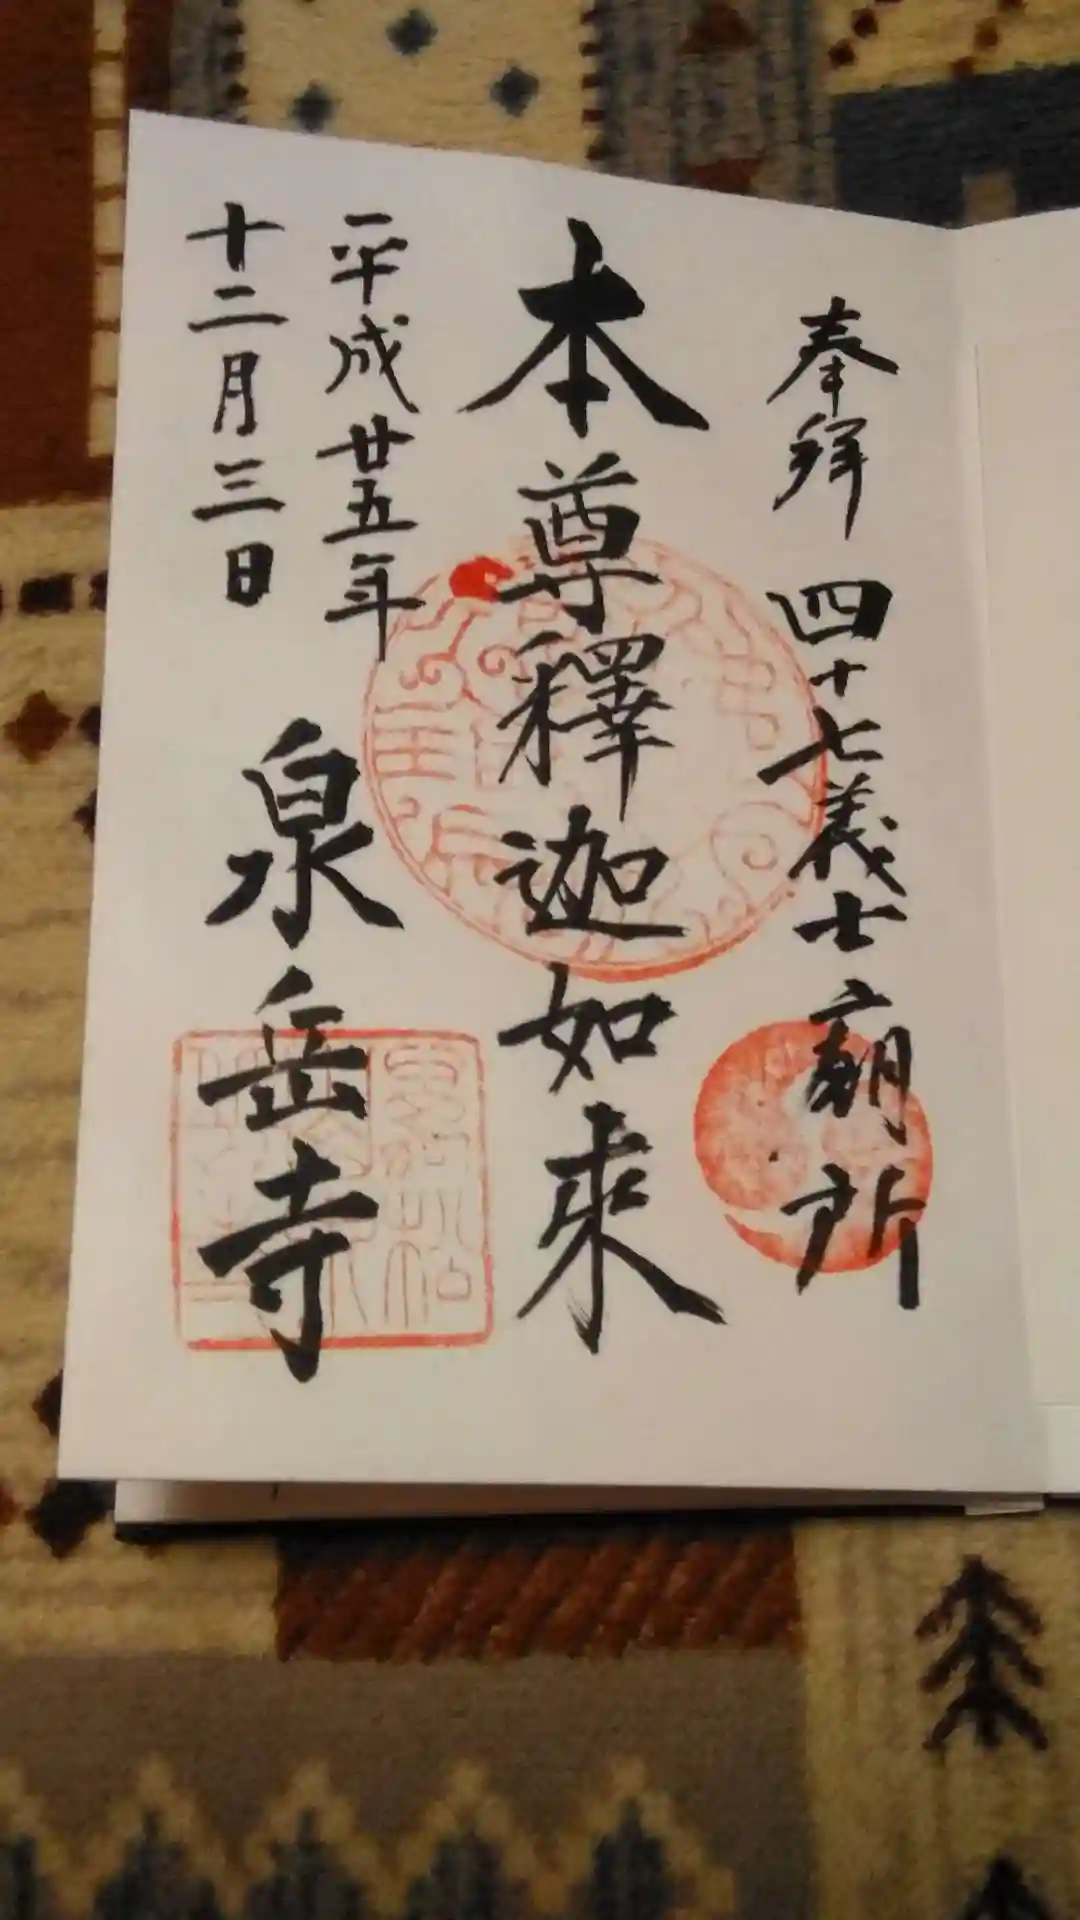 奉拝 四十七義士廟所
本尊釋迦如来
平成廿五年
十二月三日
泉岳寺